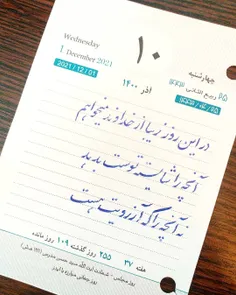 Wednesday
1 December 2021
2021 / 12 / 01
۱۰
آذر ۱۴۰۰
چهارشنبه
۲۵ ربیع الثانی ۱۴۴۳
در این روز زیبا از خداوند میخواهم
آنچه را شایسته توست بدهد
نه آنچه را که آرزویت هست
هفته ۳۷ ۲۵۵ روز گذشته ۱۰۹ روز مانده